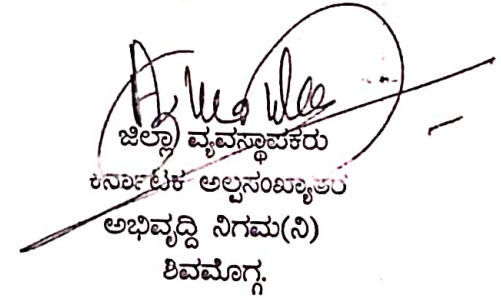 ಜಿಲ್ಲಾ ವ್ಯವಸ್ಥಾಪಕರು
ಕರ್ನಾಟಕ ಅಲ್ಪಸಂಖ್ಯಾತರ
ಅಭಿವೃದ್ಧಿ ನಿಗಮ(ನಿ)
ಶಿವಮೊಗ್ಗ.